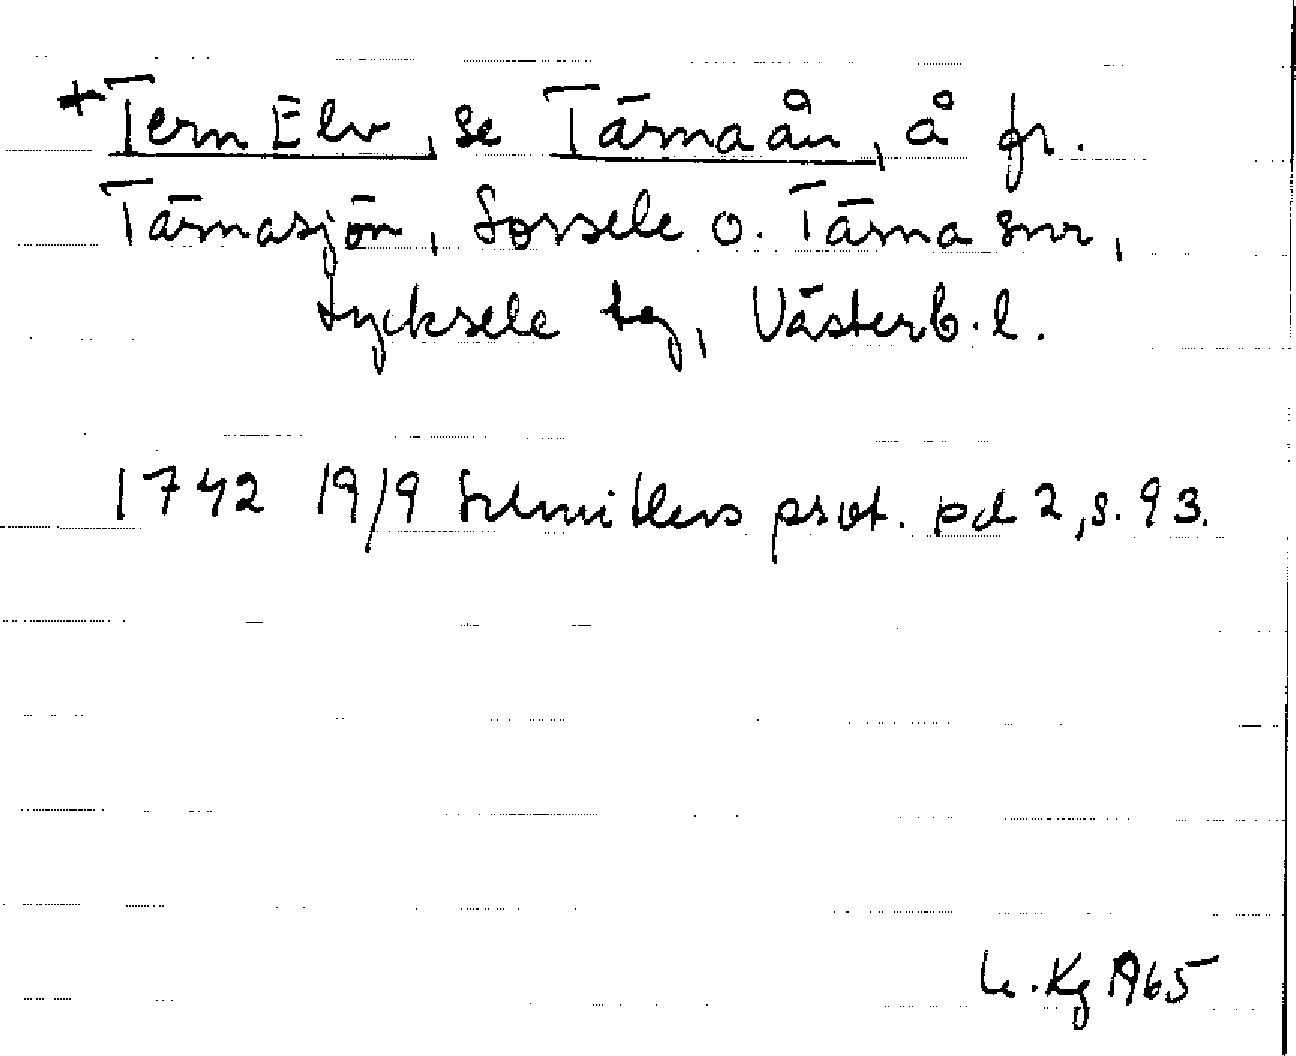 +Tern Elv, se Tärnaån, å fr.
Tärnasjön, Sorsele o. Tärna snr,
Lycksele tg, Västerb. l.
1742 19/9 Schnitlers prot. pd 2, s. 93.
Kg 1965